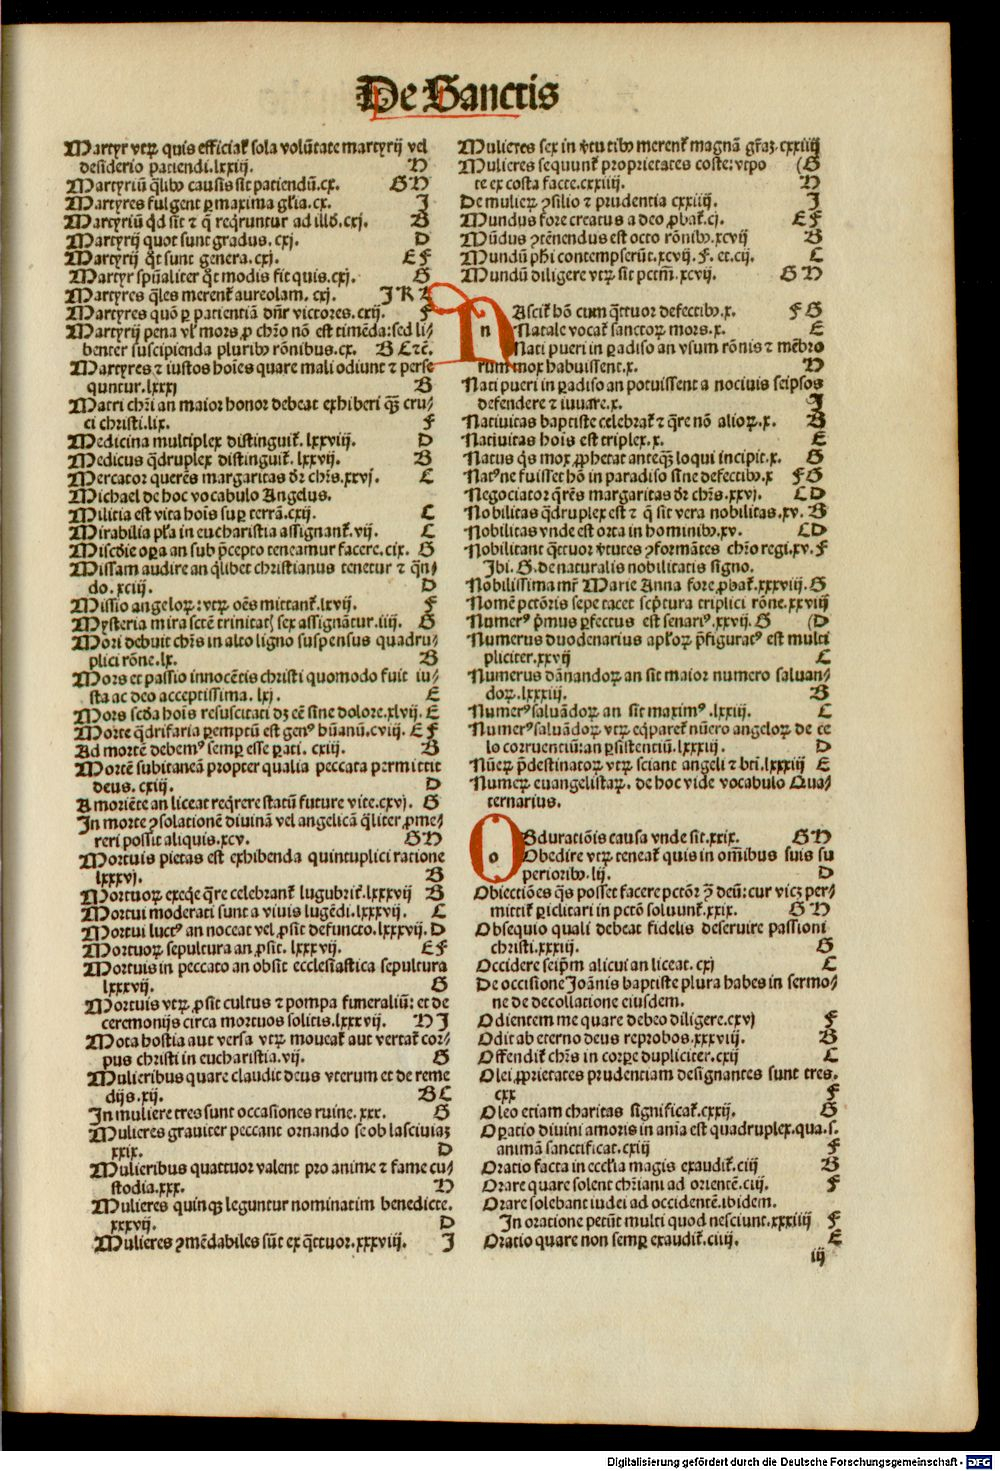 De Sanctis
Martyr vtꝝ quis efficiat᷑ sola volūtate martyrij vel
desiderio patiendi.lxxiij. H
Martyriū q̄lib⁹ causis sit patiendū.cx. G H
Martyres fulgent ꝑ maxima gl̄ia.cx. I
Martyriū q̄d sit ⁊ q̄ req̄runtur ad illd̄.cxj. B
Martyrij quot sunt gradus.cxj. D
Martyrij q̄t sunt genera.cxj. E F
Martyr spūaliter q̄t modis fit quis.cxj. G
Martyres q̄les merent᷑ aureolam. cxj. I K L
Martyres quō ꝑ patientiā dn̄r victores.cxij. F
Martyrij pena vl̓ mors ꝓ chr̄o nō est timēda:sed li⸗
benter suscipienda plurib⁹ rōnibus.cx. B C ⁊c̄.
Martyres ⁊ iustos hoīes quare mali odiunt ⁊ perse
quntur.lxxxj B
Matri chr̄i an maior honor debeat exhiberi q̄ꝫ cru⸗
ci christi.lix. F
Medicina multiplex distinguit᷑.lxxviij. D
Medicus q̄druplex distinguit᷑.lxxvij. B
Mercator querēs margaritas dr̄ chr̄s.xxvj. C
Michael de hoc vocabulo Angelus.
Militia est vita hoīs suꝑ terrā.cxij. C
Mirabilia pl̄a in eucharistia assignant᷑.vij. C
Miscd̄ie oꝑa an sub p̄cepto teneamur facere.cix. G
Missam audire an q̄libet christianus tenetur ⁊ q̄n⸗
do.xciij. D
Missio angeloꝝ:vtꝝ oēs mittant᷑.lvij. F
Mysteria mira sctē trinitatꝭ sex assignātur.iiij. G
Mori debuit chr̄s in alto ligno suspensus quadru⸗
plici rōne.lx. B
Mors et passio innocētis christi quomodo fuit iu⸗
sta ac deo acceptissima.lxj. E
Mors scd̄a hoīs resuscitati dꝫ eē sine dolore.xlvij. E
Morte q̄drifaria ꝑemptū est gen⁹ hūanū.cviij. E F
Ad mortē debem⁹ semꝑ esse ꝑati. cxiij. B
Mortē subitaneā propter qualia peccata permittit
deus.cxiij. D
A moriēte an liceat req̄rere statū future vite.cxvj. G
In morte ꝯsolationē diuinā vel angelicā q̄liter ꝓme⸗
reri possit aliquis.xcv. G H
Mortuis pietas est exhibenda quintuplici ratione
lxxxvj. B
Mortuoꝝ exeq̄e q̄re celebrant᷑ lugubrit᷑.lxxxvij B
Mortui moderati sunt a viuis lugēdi.lxxxvij. C
Mortui luct⁹ an noceat vel ꝓsit defuncto.lxxxvij. D
Mortuoꝝ sepultura an ꝓsit. lxxxvij. E F
Mortuis in peccato an obsit ecclesiastica sepultura
lxxxvij. G
Mortuis vtꝝ ꝓsit cultus ⁊ pompa funeraliū: et de
ceremonijs circa mortuos solitis.lxxxvij. H I
Mota hostia aut versa vtꝝ moueat᷑ aut vertat᷑ cor⸗
pus christi in eucharistia.vij. G
Mulieribus quare claudit deus vterum et de reme
dijs.xij. B C
In muliere tres sunt occasiones ruine.xxx. G
Mulieres grauiter peccant ornando se ob lasciuiaꝫ
xxix. D
Mulieribus quattuor valent pro anime ⁊ fame cu⸗
stodia.xxx. H
Mulieres quinqꝫ leguntur nominatim benedicte.
xxxvij. D
Mulieres ꝯmēdabiles sūt ex q̄ttuor.xxxviij. I
Mulieres sex in v̓tutib⁹ merent᷑ magnā gr̄aꝫ.cxxiiij
Mulieres sequunt᷑ proprietates coste:vtpo (G
te ex costa facte.cxxiiij. H
De mulieꝝ ꝯsilio ⁊ prudentia cxxiiij. I
Mundus fore creatus a deo ꝓbat᷑.cj. E F
Mūdus ꝯtēnendus est octo rōnib⁹.xcvij B
Mundū ph̄i contempserūt.xcvij.F. et.cij. C
Mundū diligere vtꝝ sit pctm̄.xcvij. G H
n
NAscit᷑ hō cum q̄ttuor defectib⁹.x. F G
Natale vocat᷑ sanctoꝝ mors.x. E
Nati pueri in ꝑadiso an vsum rōnis ⁊ mēbro
rum mox habuissent.x. H
Nati pueri in ꝑadiso an potuissent a nociuis seipsos
defendere ⁊ iuuare.x. I
Natiuitas baptiste celebrat᷑ ⁊ q̄re nō alioꝝ.x. B
Natiuitas hoīs est triplex.x. E
Natus q̄s mox ꝓphetat anteq̄ꝫ loqui incipit.x. G
Nat⁹ne fuisset hō in paradiso sine defectib⁹.x F G
Negociator q̄rēs margaritas dr̄ chr̄s.xxvj. C D
Nobilitas q̄druplex est ⁊ q̄ sit vera nobilitas.xv. B
Nobilitas vnde est orta in hominib⁹.xv. C D
Nobilitant q̄ttuor v̓tutes ꝯformātes chr̄o regi.xv. F
Ibi. G. de naturalis nobilitatis signo.
Nobilissima mr̄ Marie Anna fore ꝓbat᷑.xxxviij. G
Nomē pctōris sepe tacet scp̄tura triplici rōne.xxviij
Numer⁹ p̄mus ꝑfectus est senari⁹.xxvij. G (D
Numerus duodenarius apl̄oꝝ p̄figurat⁹ est multi
pliciter.xxvij C
Numerus dānandoꝝ an sit maior numero saluan⸗
doꝝ.lxxxiij. B
Numer⁹ saluādoꝝ an sit maxim⁹.lxxiij. C
Numer⁹ saluādoꝝ vtꝝ eq̄paret᷑ nūero angeloꝝ de ce
lo corruentiū:an ꝑsistentiū.lxxxiij. D
Nūeꝝ p̄destinatoꝝ vtꝝ sciant angeli ⁊ bt̄i.lxxxiij E
Numeꝝ euangelistaꝝ. de hoc vide vocabulo Qua⸗
ternarius.
o
OBduratiōis causa vnde sit.xxix. G H
Obedire vtꝝ teneat᷑ quis in om̄ibus suis su
periorib⁹.lij. D
Obiectiōes q̄s posset facere pctōr ꝯ̄ deū:cur vicꝫ per⸗
mittit᷑ ꝑiclitari in pctō soluunt᷑.xxix. G H
Obsequio quali debeat fidelis deseruire passioni
christi.xxxiij. G
Occidere seip̄m alicui an liceat.cxj C
De occisione Joānis baptiste plura habes in sermo⸗
ne de decollatione eiusdem.
Odientem me quare debeo diligere.cxvj F
Odit ab eterno deus reprobos.xxxviij. B
Offendit᷑ chr̄s in corꝑe dupliciter.cxij C
Olei ꝓprietates prudentiam designantes sunt tres.
cxx F
Oleo etiam charitas significat᷑.cxxij. G
Oꝑatio diuini amoris in aīa est quadruplex.qua.s.
animā sanctificat.cxiij F
Oratio facta in eccl̄ia magis exaudit᷑.ciij B
Orare quare solent chr̄iani ad orientē.ciij. F
Orare solebant iudei ad occidentē.ibidem.
In oratione petūt multi quod nesciunt.xxxiiij F
Oratio quare non semꝑ exaudit᷑.ciiij. E
iij
Digitalisierung gefördert durch die Deutsche Forschungsgemeinschaft - DFG